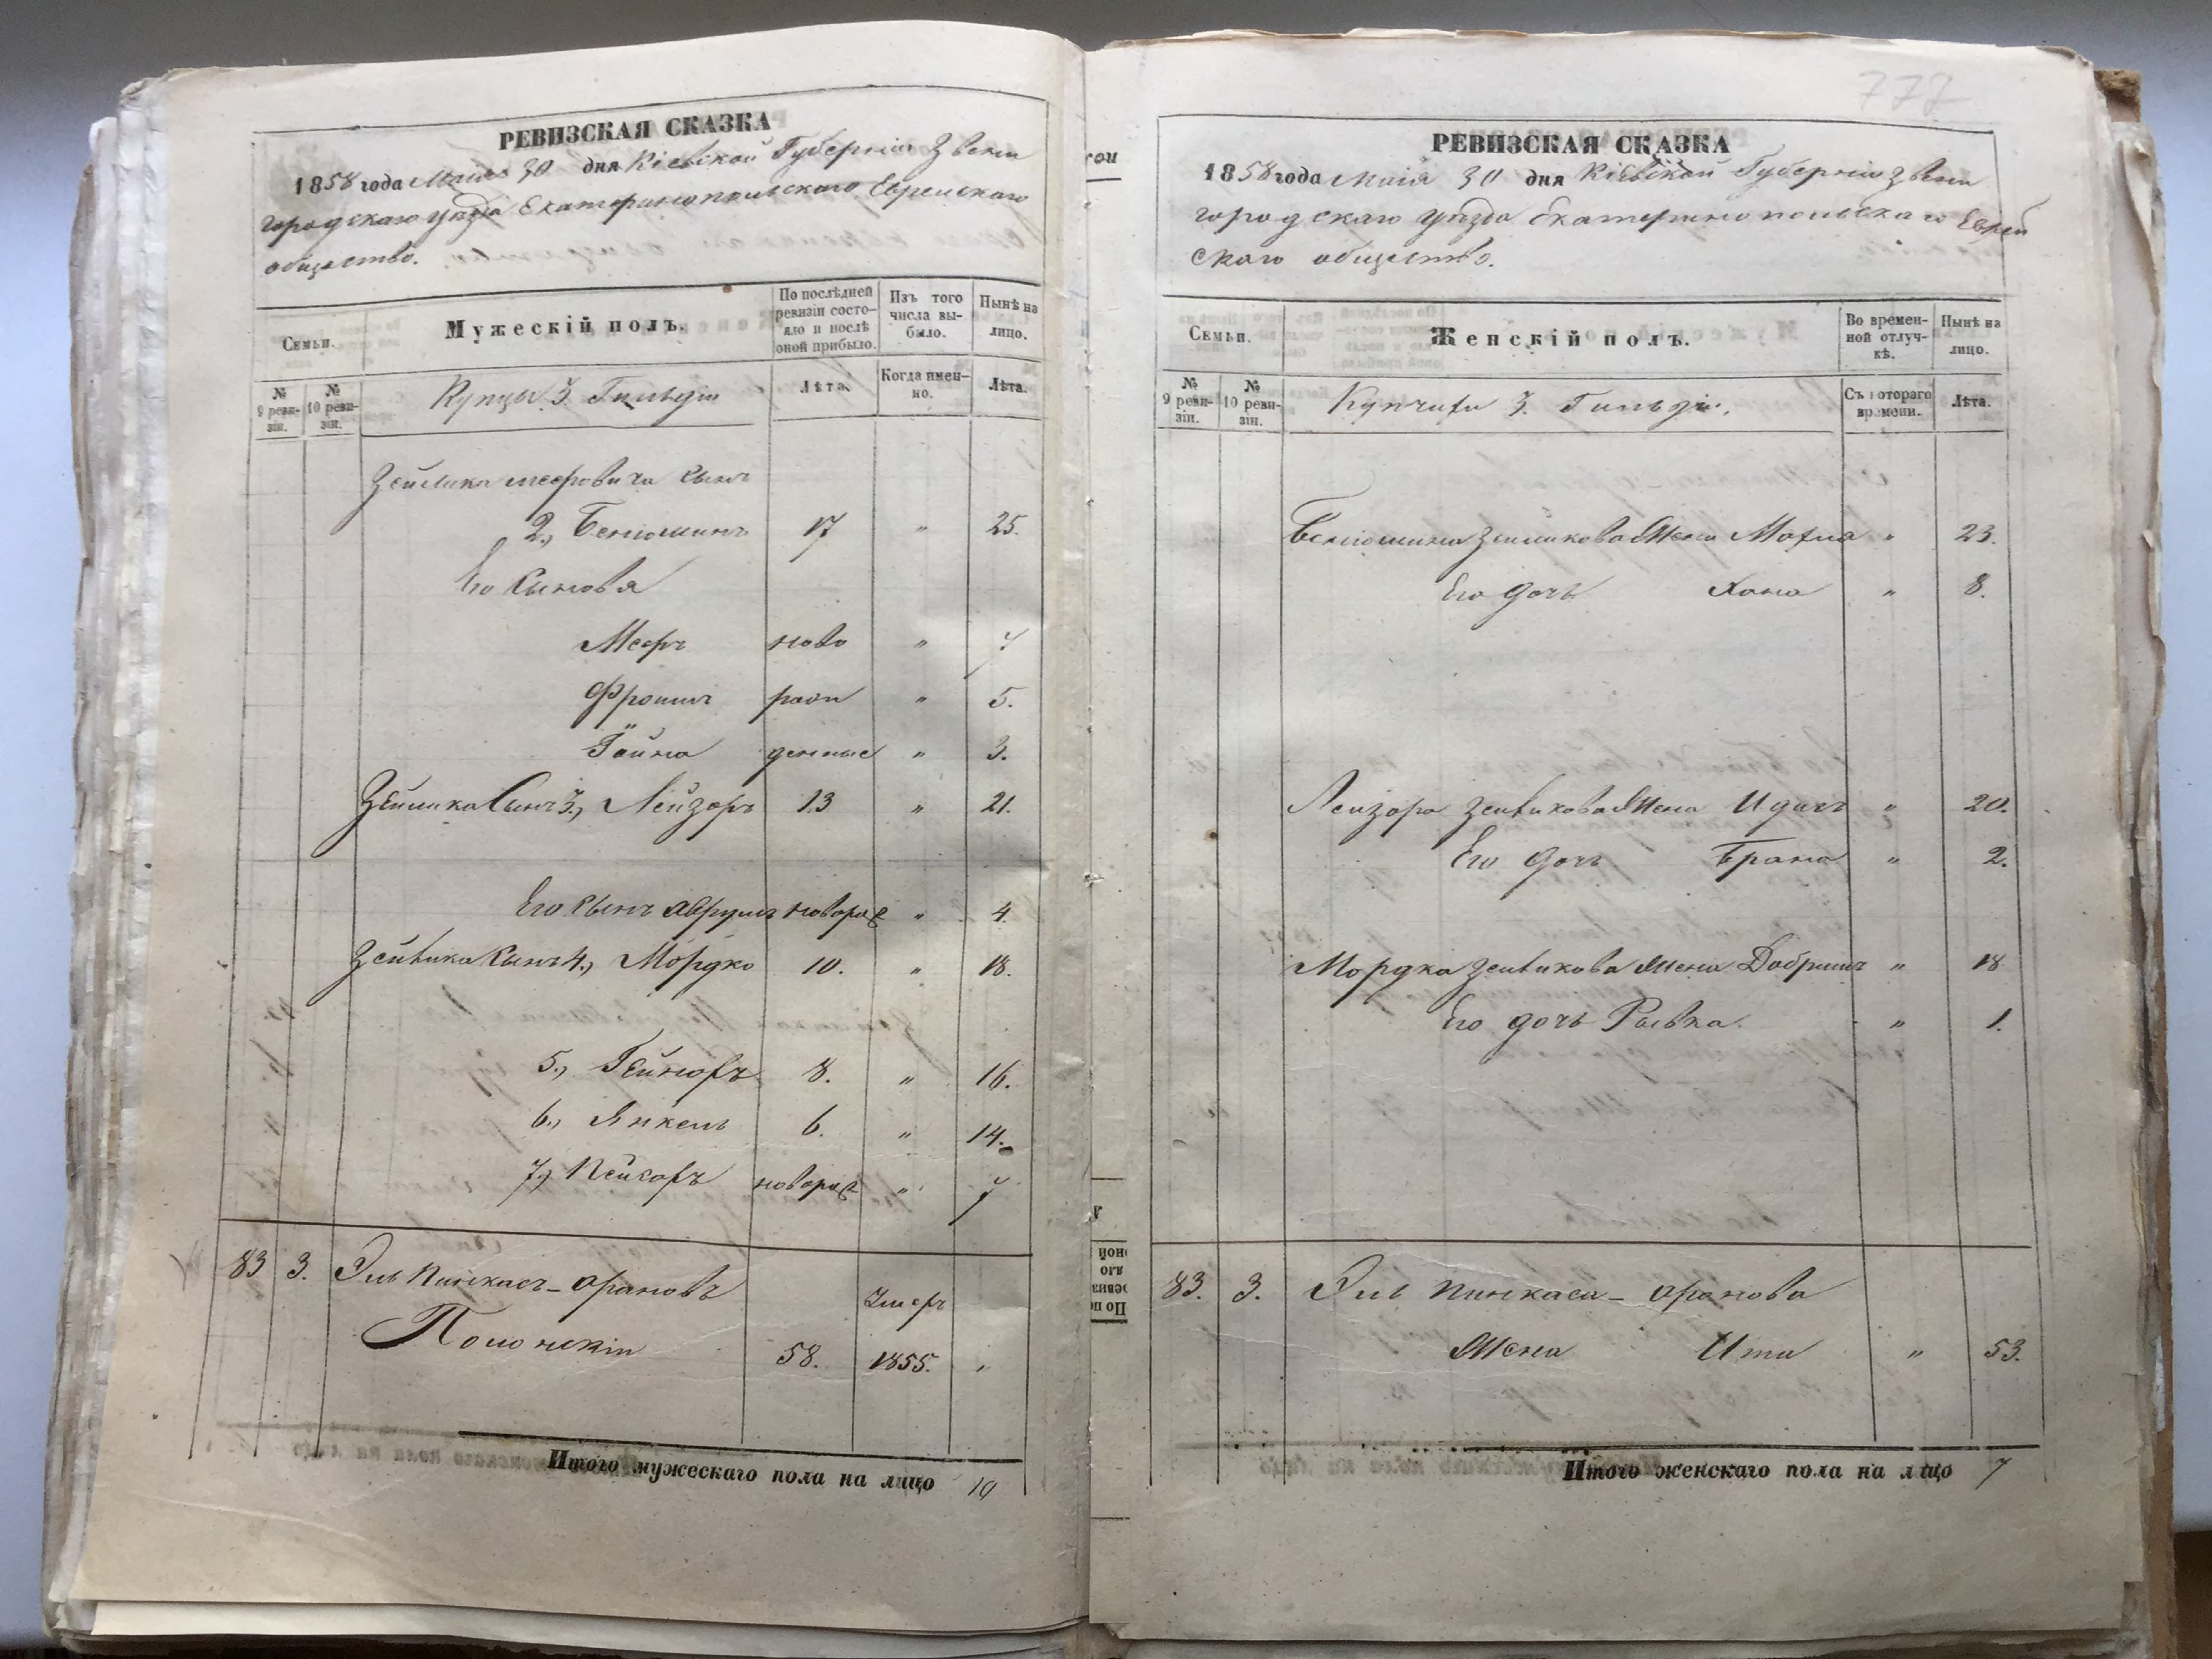 РЕВИЗСКАЯ СКАЗКА
1858 года Маія 30 дня Кіевской Губерніи Звени
городскаго уезда Екатеринопольскаго Еврейскаго
общество.
Семьи.
Мужескій полъ.
По послѣдней ревизіи состояло и послѣ оной прибыло.
Изъ того числа выбыло.
Нынѣ на лицо.
№ 9 ревизіи.
№ 10 ревизіи.
Купцы 3. Гильдіи
Лѣта.
Когда именно.
Лѣта.
Зейлика Мееровича сынъ
2., Бениоминъ 17 " 25.
Его сыновя
Мееръ ново " 7
Фроимъ рож " 5.
Гойна денные " 3.
Зейлика Сынъ 3., Лейзоръ 13 " 21.
Его сынъ Аврумъ новорож " 4.
Зейлика Сынъ 4., Мордко 10. " 18.
5., Гейнохъ 8. " 16.
6., Янкель 6. " 14.
7., новорож " 7
83 3. Эль Пинкасъ - Ароновъ
Умеръ
Полонскій 58. 1855. "
Итого мужескаго пола на лицо 10
777
РЕВИЗСКАЯ СКАЗКА
1858 года Маія 30 дня Кіевской Губерніи Звени
городскаго уезда Екатеринопольскаго Еврей
скаго общество.
Семьи.
Женскій полъ.
Во временной отлучкѣ.
Нынѣ на лицо.
№ 9 ревизіи.
№ 10 ревизіи.
Купчихи 3. Гильдіи.
Съ котораго времени.
Лѣта.
Бениомина Зейликова Жена " 23.
Его дочь Хана " 8.
Лейзора Зейликова Жена " 20.
Его дочь Брана " 2.
Мордка Зейликова Жена Добришъ " 18
Его дочь Рывка. " 1.
83. 3. Эль Пинкаса - Аронова
Жена Ита " 53.
Итого женскаго пола на лицо 7